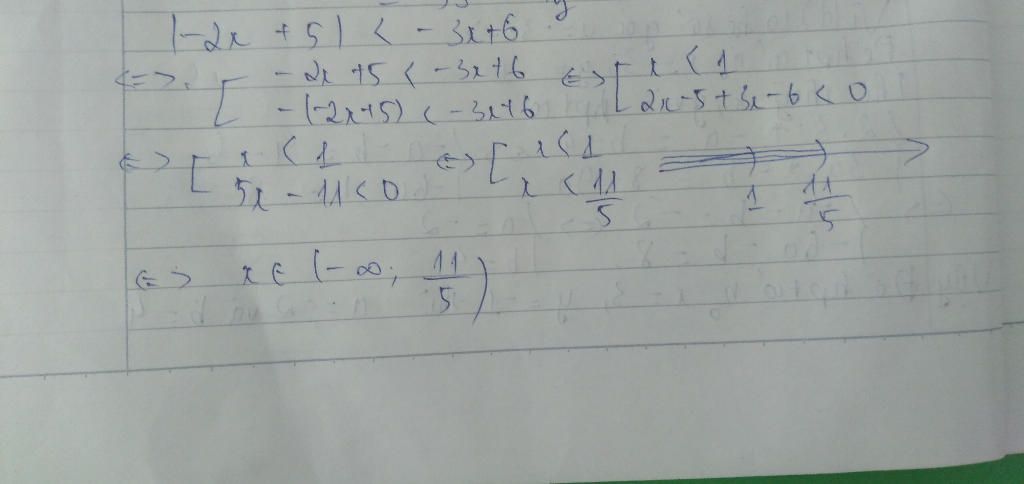 |-2x + 5| < -3x+6
<=> [ -2x+5 < -3x+6 <=> [ x < 1
-(-2x+5) < -3x+6 2x-5+3x-6 < 0
<=> [ x < 1 <=> [ x < 1
5x - 11 < 0 x < 11/5 1 11/5
<=> x ∈ (-∞; 11/5)